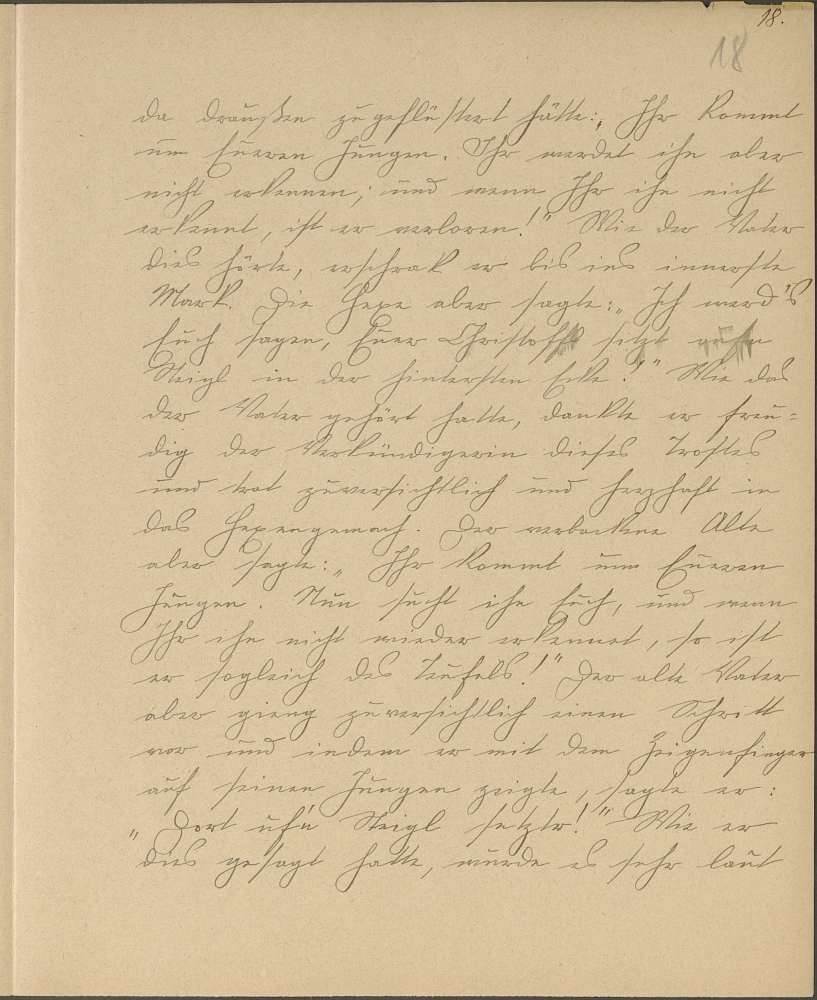 18.
18
da draußen zugeflüstert hätte: „Ihr kommt
um Eueren Jungen. Ihr werdet ihn aber
nicht erkennen; und wenn Ihr ihn nicht
erkennt, ist er verloren!" Wie der Vater
dies hörte, erschrak er bis ins innerste
Mark. Die Hexe aber sagte: „Ich werd's
Euch sagen, Euer Christoff sitzt
Steigl in der hintersten Ecke!" Wie das
der Vater gehört hatte, dankte er freu-
dig der Verkündigerin dieses Trostes
und trat zuversichtlich und herzhaft in
das Hexengemach. Der verbackene Alte
aber sagte: „Ihr kommt um Eueren
Jungen. Nun sucht ihn Euch, und wenn
Ihr ihn nicht wieder erkennet, so ist
er sogleich des Teufels!" Der alte Vater
aber gieng zuversichtlich einen Schritt
vor und indem er mit dem Zeigenfinger
auf seinen Jungen zeigte, sagte er:
„Dort uf'n Steigl setztr!" Wie er
dies gesagt hatte, wurde es sehr laut